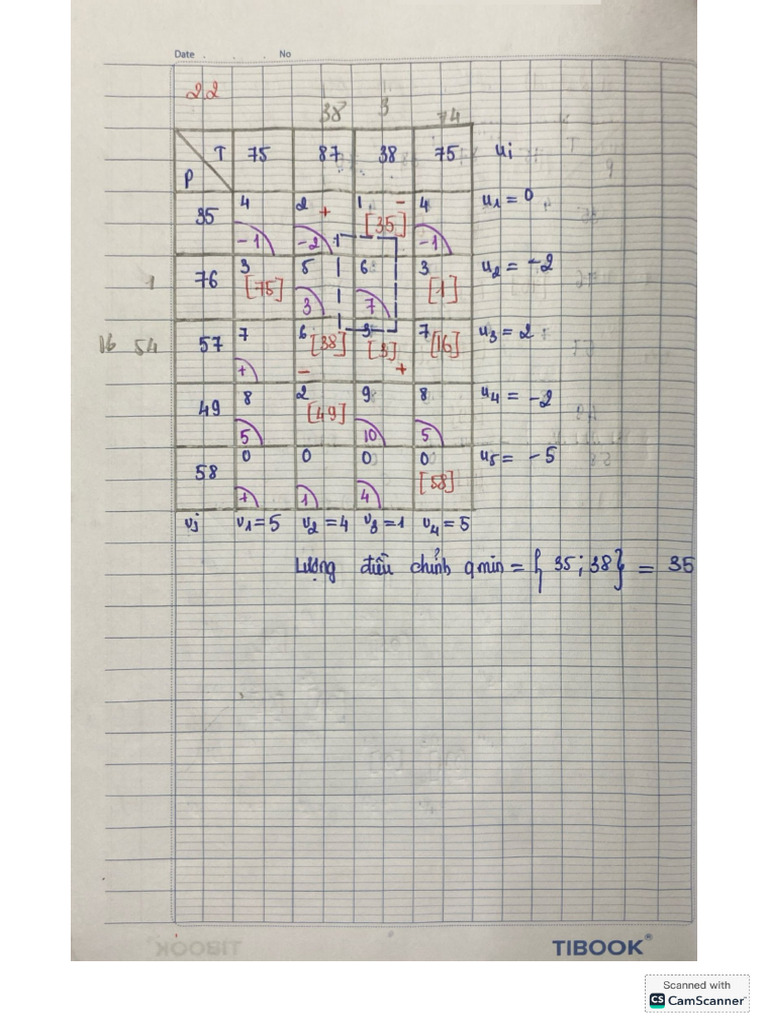 Date No
22
38 3 74
T 75 87 38 75 ui
P
35 4 2 + 1 − 4 u1 = 0
[35]
-1 -2 -1
1 76 3 5 6 3 u2 = -2
[75] [1]
3 7
16 54 57 7 6 3 7 u3 = 2
[38] [3] [16]
+ − +
49 8 2 9 8 u4 = -2
[49]
5 10 5
58 0 0 0 0 u5 = -5
[58]
+ 1 4
vj v1 = 5 v2 = 4 v3 = 1 v4 = 5
Lượng điều chỉnh q min = { 35 ; 38 } = 35
TIBOOK
Scanned with
CS CamScanner